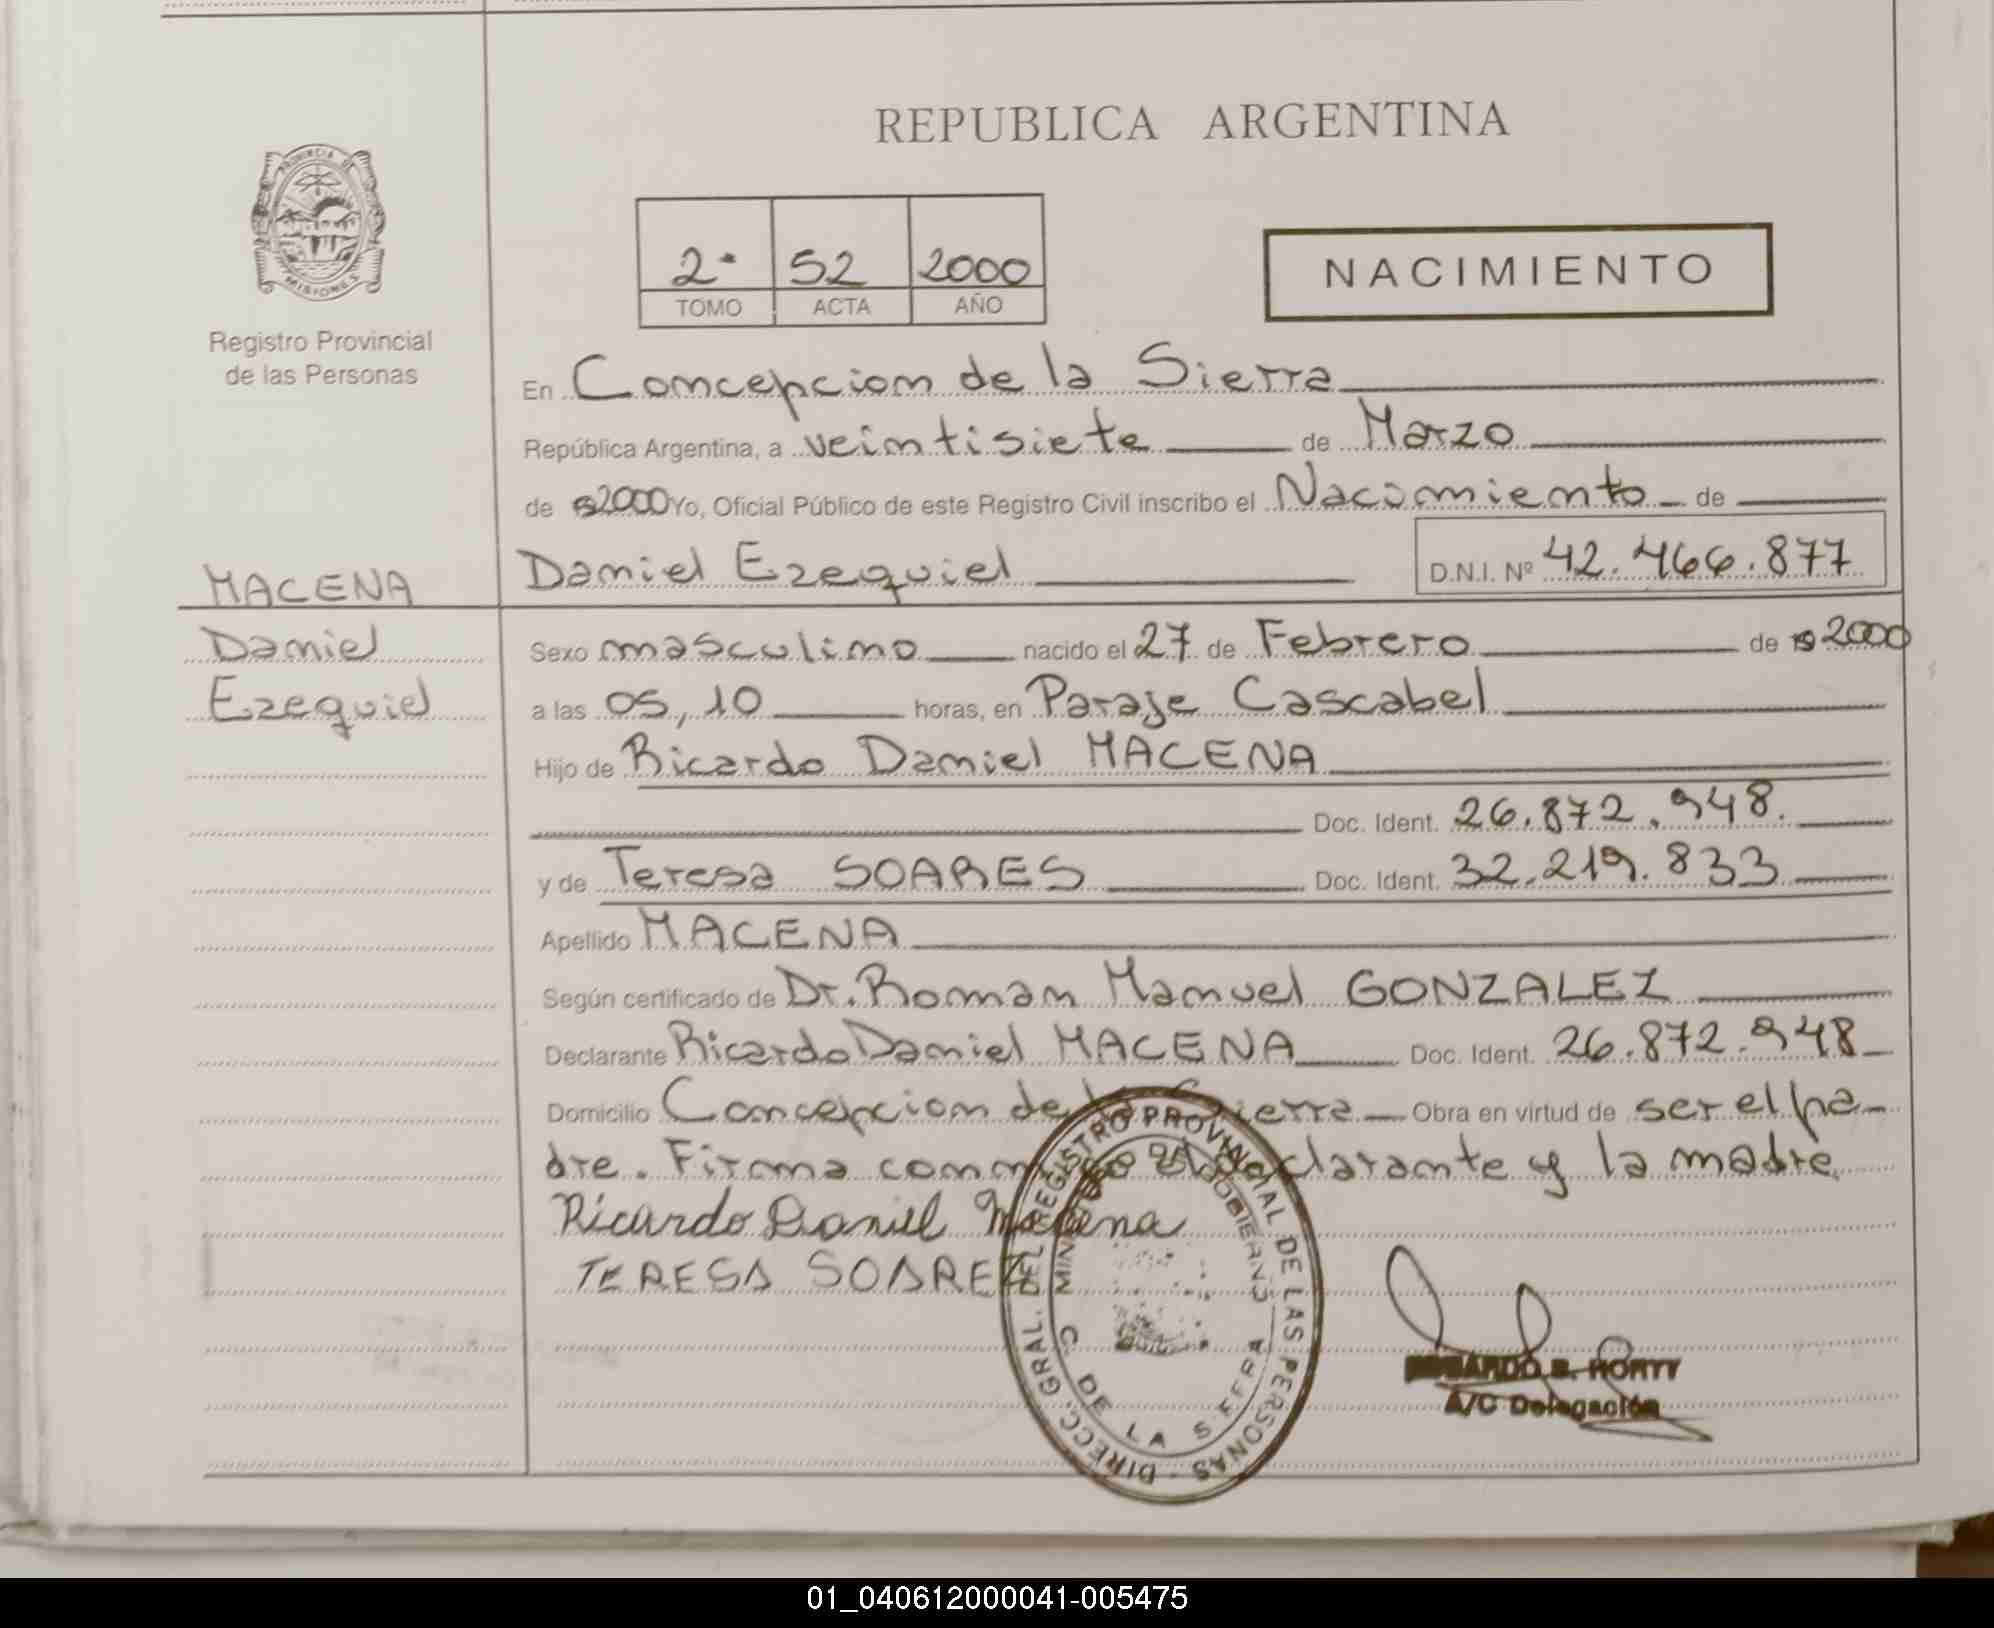 REPUBLICA ARGENTINA
PROVINCIA DE
MISIONES
Registro Provincial
de las Personas
2ª 52 2000
TOMO ACTA AÑO
NACIMIENTO
En Concepcion de la Sierra
República Argentina, a veintisiete de Marzo
de 2000 Yo, Oficial Público de este Registro Civil inscribo el Nacimiento de
Daniel Ezequiel D.N.I. Nº 42.466.877
MACENA
Daniel
Ezequiel
Sexo masculino nacido el 27 de Febrero de 2000
a las 05,10 horas, en Paraje Cascabel
Hijo de Ricardo Daniel MACENA
Doc. Ident. 26.872.948.
y de Teresa SOARES Doc. Ident. 32.219.833
Apellido MACENA
Según certificado de Dr. Roman Manuel GONZALEZ
Declarante Ricardo Daniel MACENA Doc. Ident. 26.872.948
Domicilio Concepcion de la Sierra Obra en virtud de ser el pa-
dre. Firma conmigo el declarante y la madre
Ricardo Daniel Macena
TERESA SOARES
DIRECC. GRAL. DEL REGISTRO PROVINCIAL DE LAS PERSONAS
C. DE LA SIERRA
A/C Delegación
01_040612000041-005475